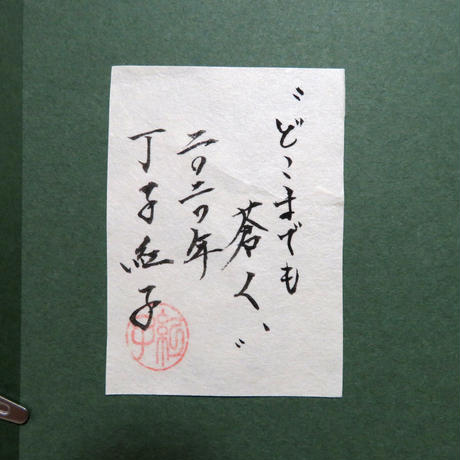 〝どこまでも
蒼く、〟
二〇二〇年
丁子紅子
紅子